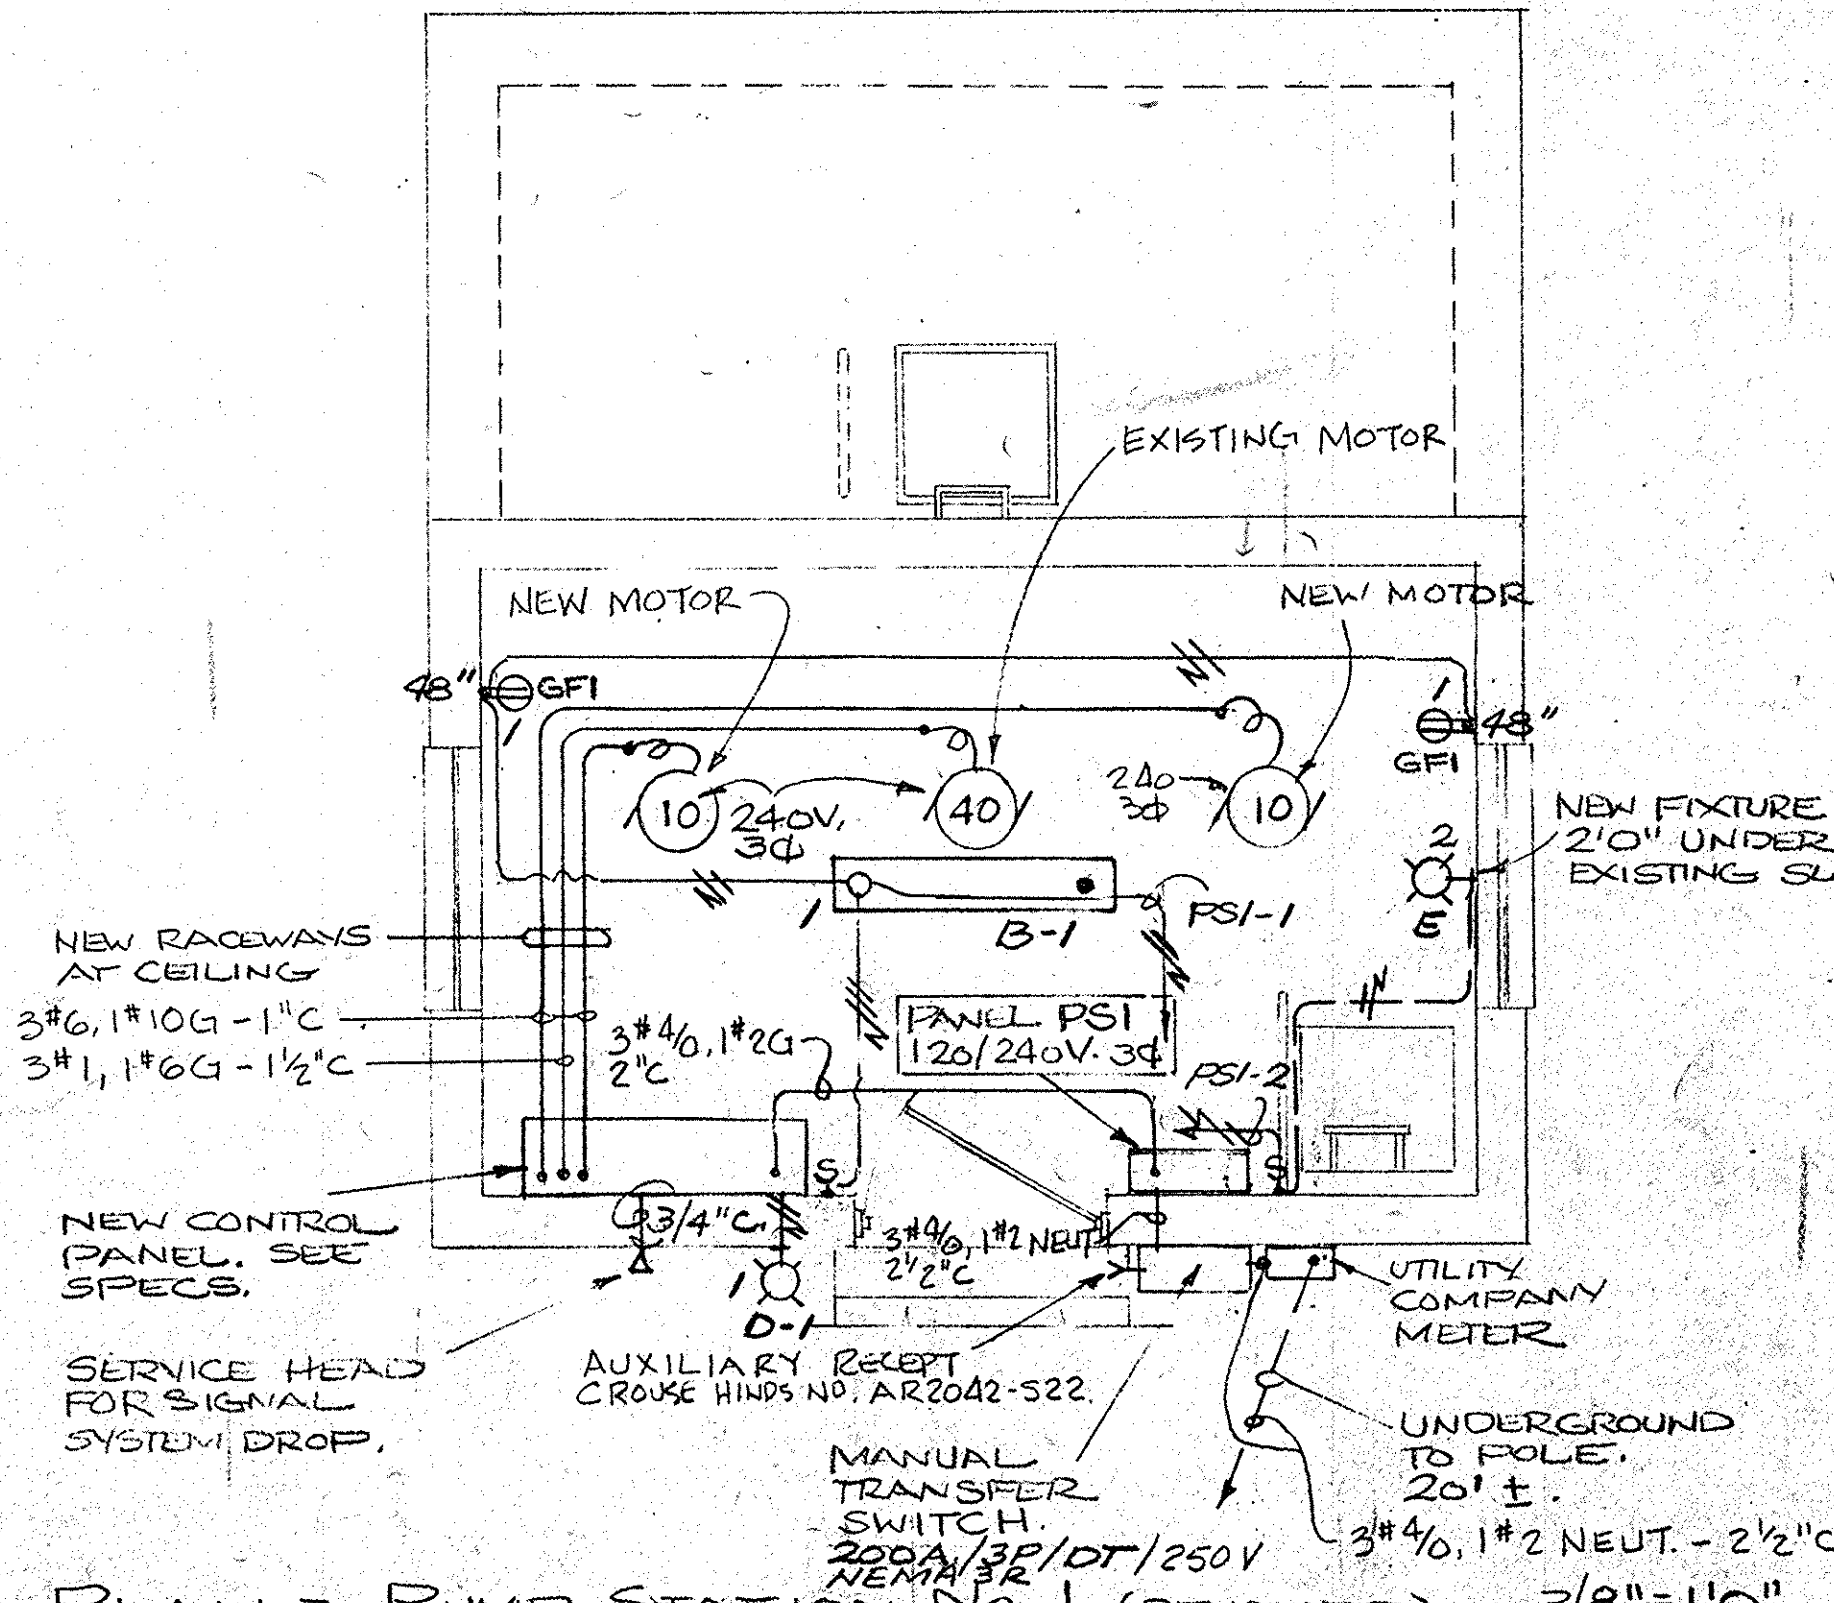 EXISTING MOTOR
NEW MOTOR
NEW MOTOR
48"
GFI
1
1
48"
GFI
10
240V,
3¢
40
240
3¢
10
NEW FIXTURE
2'0" UNDER
EXISTING
2
E
1
B-1
PS1-1
NEW RACEWAYS
AT CEILING
3#6, 1#10G - 1"C
3#1, 1#6G - 1½"C
3#4/0, 1#2G
2"C
PANEL PS1
120/240V. 3¢
PS1-2
S
S
NEW CONTROL
PANEL. SEE
SPECS.
3/4"C.
3#4/0, 1#2 NEUT
2½"C
1
D-1
UTILITY
COMPANY
METER
SERVICE HEAD
FOR SIGNAL
SYSTEM DROP.
AUXILIARY RECEPT
CROUSE HINDS NO. AR2042-S22.
UNDERGROUND
TO POLE.
20' ±.
MANUAL
TRANSFER
SWITCH.
200A/3P/DT/250V
NEMA 3R
3#4/0, 1#2 NEUT. - 2½"C
PUMP STATION No. 1
3/8"=1'0"